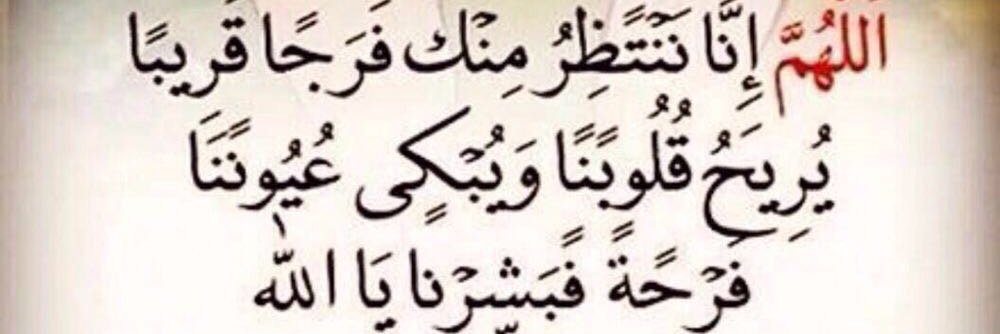 اَللّٰهُمَّ إِنَّا نَنْتَظِرُ مِنْك فَرَجًا قَرِيبًا
يُرِيَحُ قُلُوبَنًا وَيُبْكِى عُيُونَنَا
فَرْحًةً فًبَشِّرْنا يَا اللّٰه